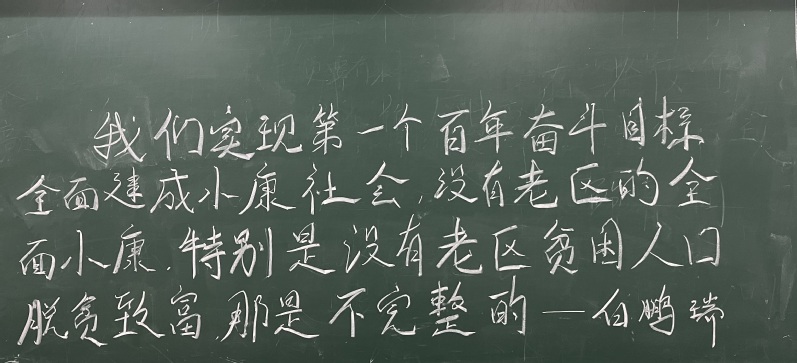 我们实现第一个百年奋斗目标
全面建成小康社会,没有老区的全
面小康.特别是没有老区贫困人口
脱贫致富,那是不完整的—白鹏瑞